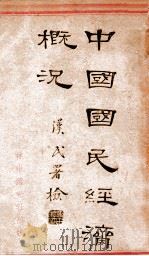 中國國民經濟
概況
漢民署檢